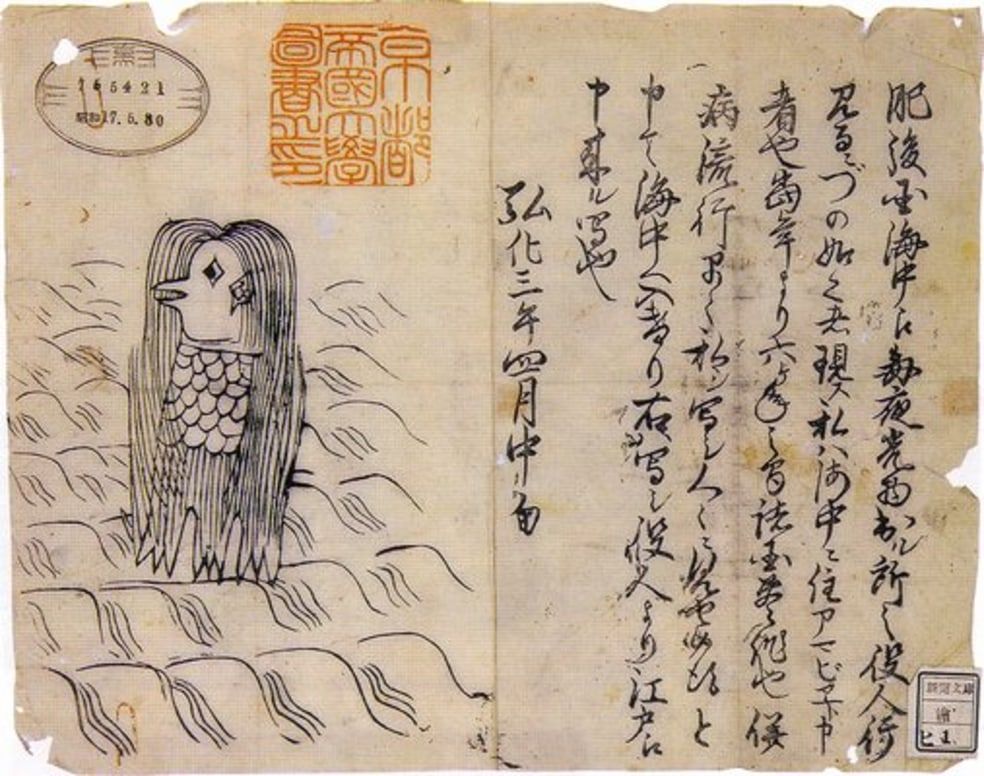 肥後国海中え毎夜光物出ル所之役人行
見るニづの如く者現ス私ハ海中ニ住アマビヱト申
者也当年より六ヶ年之間諸国豊作也併
病流行早々私シ写シ人々ニ見セ候得と
申て海中へ入けり右写シ役人より江戸え
申来ル写也
弘化三年四月中旬
京都
帝國大學
圖書之印
765421
昭和17.5.30
新聞文庫
繪
ヒ 1.